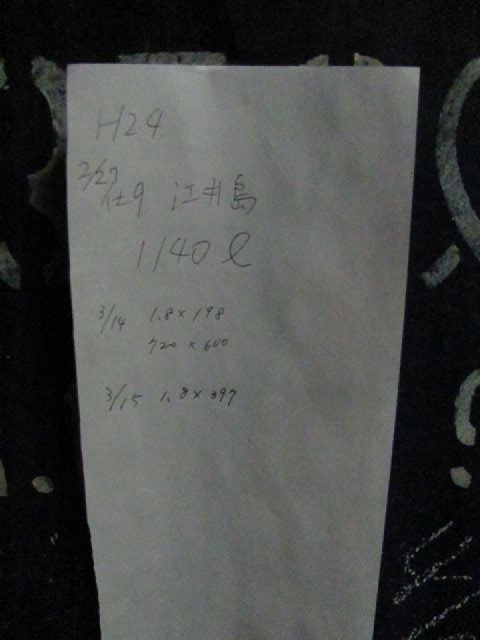 H24
2/27
仕9 江井島
1140ℓ
3/14 1.8×198
720×600
3/15 1.8×397